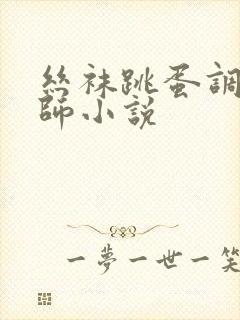 絲袜跳蛋調
師小説
一夢一世一笑